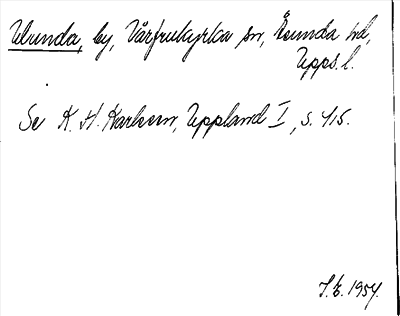 Ulunda, by, Vårfrukyrka sn, Åsunda hd,
Upps. l.
Se K. H. Karlsson, Uppland I, s. 415.
J. E. 1954.